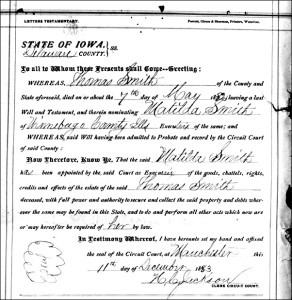 LETTERS TESTAMENTARY.
STATE OF IOWA,
Delaware COUNTY. } ss.
To all to Whom these Presents shall Come—Greeting:
WHEREAS, Thomas Smith of the County and
State aforesaid, died on or about the 7th day of May 188 leaving a last
Will and Testament, and therein nominating Matilda Smith
of Winnebago County Ills Executrix of the same; and
WHEREAS, said Will having been admitted to Probate and record by the Circuit Court
of said County:
Now Therefore, Know Ye, That the said Matilda Smith
has been appointed by the said Court as Executrix of the goods, chattels, rights,
credits and effects of the estate of the said Thomas Smith
deceased, with full power and authority to secure and collect the said property and debts wher-
ever the same may be found in this State, and to do and perform all other acts which now are
or may hereafter be required of her by law.
In Testimony Whereof, I have hereunto set my hand and affixed
the seal of the Circuit Court, at Manchester this
11th day of December 1883
H. C. Jackson
CLERK CIRCUIT COURT.